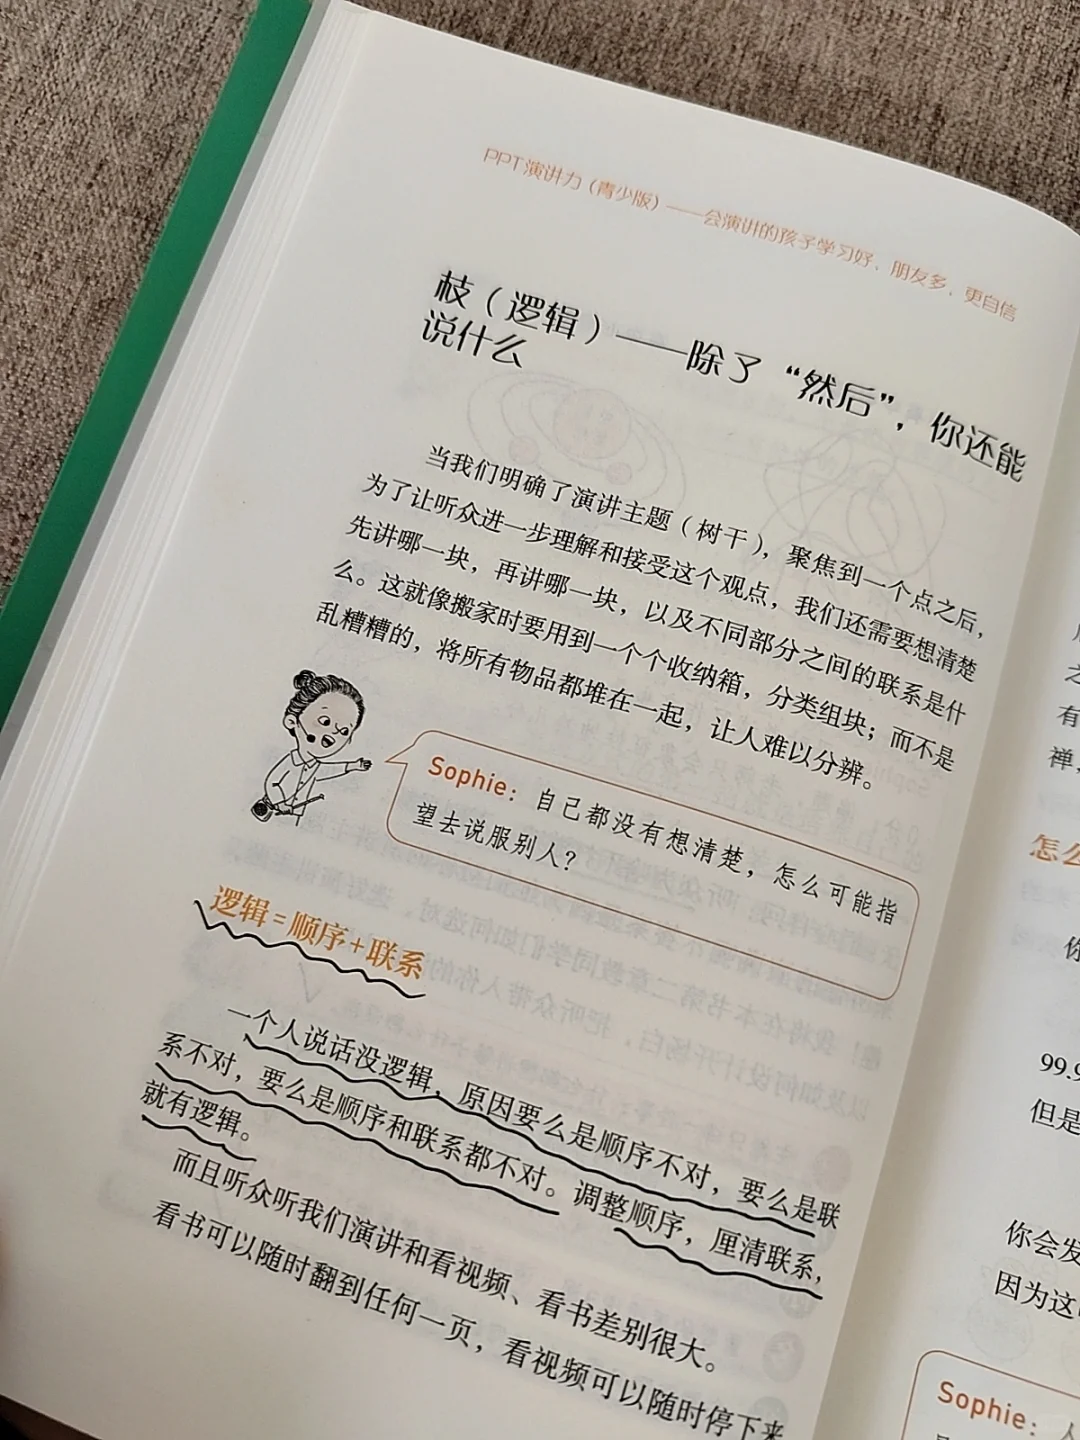 PPT演讲力（青少版）——会演讲的孩子学习好、朋友多、更自信
枝（逻辑）——除了“然后”，你还能
说什么
当我们明确了演讲主题（树干），聚焦到一个点之后，
为了让听众进一步理解和接受这个观点，我们还需要想清楚
先讲哪一块，再讲哪一块，以及不同部分之间的联系是什
么。这就像搬家时要用到一个个收纳箱，分类组块；而不是
乱糟糟的，将所有物品都堆在一起，让人难以分辨。
Sophie：自己都没有想清楚，怎么可能指
望去说服别人？
逻辑=顺序+联系
一个人说话没逻辑，原因要么是顺序不对，要么是联
系不对，要么是顺序和联系都不对。调整顺序，厘清联系，
就有逻辑。
而且听众听我们演讲和看视频、看书差别很大。
看书可以随时翻到任何一页，看视频可以随时停下来
之
有
禅，
怎么
你
99.9
但是
你会发
因为这
Sophie：人